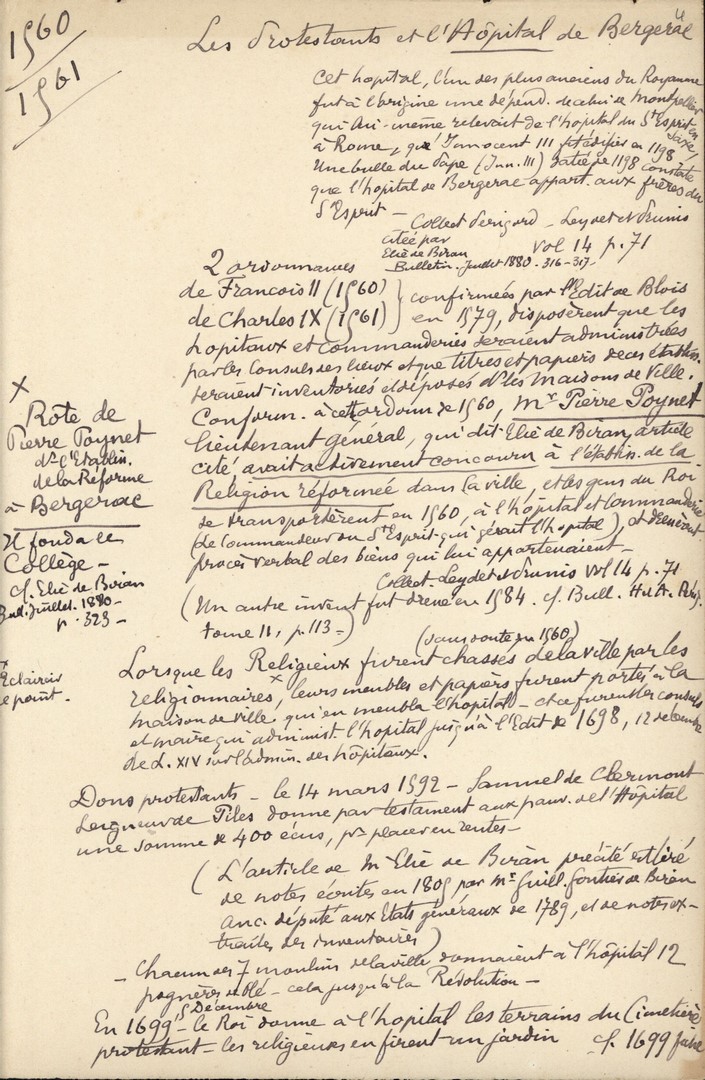 4
1560
1561
Les Protestants et l'Hôpital de Bergerac
Cet hopital, l'un des plus anciens du Royaume
fut à l'origine une dépend. de celui de Montpellier
qui lui-même relevait de l'hopital du St Esprit en Saxe,
à Rome, qu'Innocent III fit édifier en 1198
Une bulle du Pape (Inn. III) datée de 1198 constate
que l'hopital de Bergerac appart. aux frères du
St Esprit —
Collect Périgord — Leydet et Prunis
vol 14 p. 71
citée par
Elie de Biran
Bulletin. Juillet 1880. 316-317-
2 ordonnances
de François II (1560)
de Charles IX (1561)
confirmées par l'Edit de Blois
en 1579, disposèrent que les
hopitaux et commanderies seraient administrées
par les Consuls des lieux et que titres et papiers de ces établiss.
seraient inventoriés et déposés ds les maisons de ville.
Conform. à cette ordonn. de 1560, Mr Pierre Poynet
lieutenant général, qui dit Elie de Biran, article
cité, avait activement concouru à l'établis. de la
Religion réformée dans la ville, et les gens du Roi
se transportèrent en 1560, à l'hôpital et Commanderie
(le Commandeur du St Esprit qui gérait l'hopital), et dressèrent
procès verbal des biens qui lui appartenaient —
Collect. Leydet et Prunis Vol 14 p. 71
(Un autre invent. fut dressé en 1584. cf. Bull. H. et A. Périg.
tome II, p. 113 —)
X
Rôle de
Pierre Poynet
ds l'Etablis.
de la Réforme
à Bergerac
Il fonda le
Collège —
cf. Elie de Biran
Bull. Juillet. 1880 —
p. 323 —
(sans doute en 1560)
Lorsque les Religieux furent chassés de la ville par les
religionnaires, x leurs meubles et papiers furent portés à la
maison de ville qu'en meubla l'hopital — et ce furent les consuls
et maire qui administ. l'hopital jusqu'à l'Edit de 1698, 12 décembre
de L. XIV sur l'admin. des hôpitaux.
x
Eclaircir
ce point.
Dons protestants — le 14 mars 1592 — Samuel de Clermont
Seigneur de Piles donne par testament aux pauv. de l'Hôpital
une somme de 400 écus, pr placer en rentes —
(L'article de Mr Elie de Biran précité est tiré
de notes écrites en 1805 par Mr Guill. Gontier de Biran
anc. député aux Etats généraux de 1789, et de notes ex-
traites des inventaires)
— Chacun des 7 moulins de la ville donnaient à l'hôpital 12
pognères de blé — cela jusqu'à la Révolution —
5 Décembre
En 1699 — le Roi donne à l'hopital les terrains du Cimetière
protestant — les religieuses en firent un jardin cf. 1699